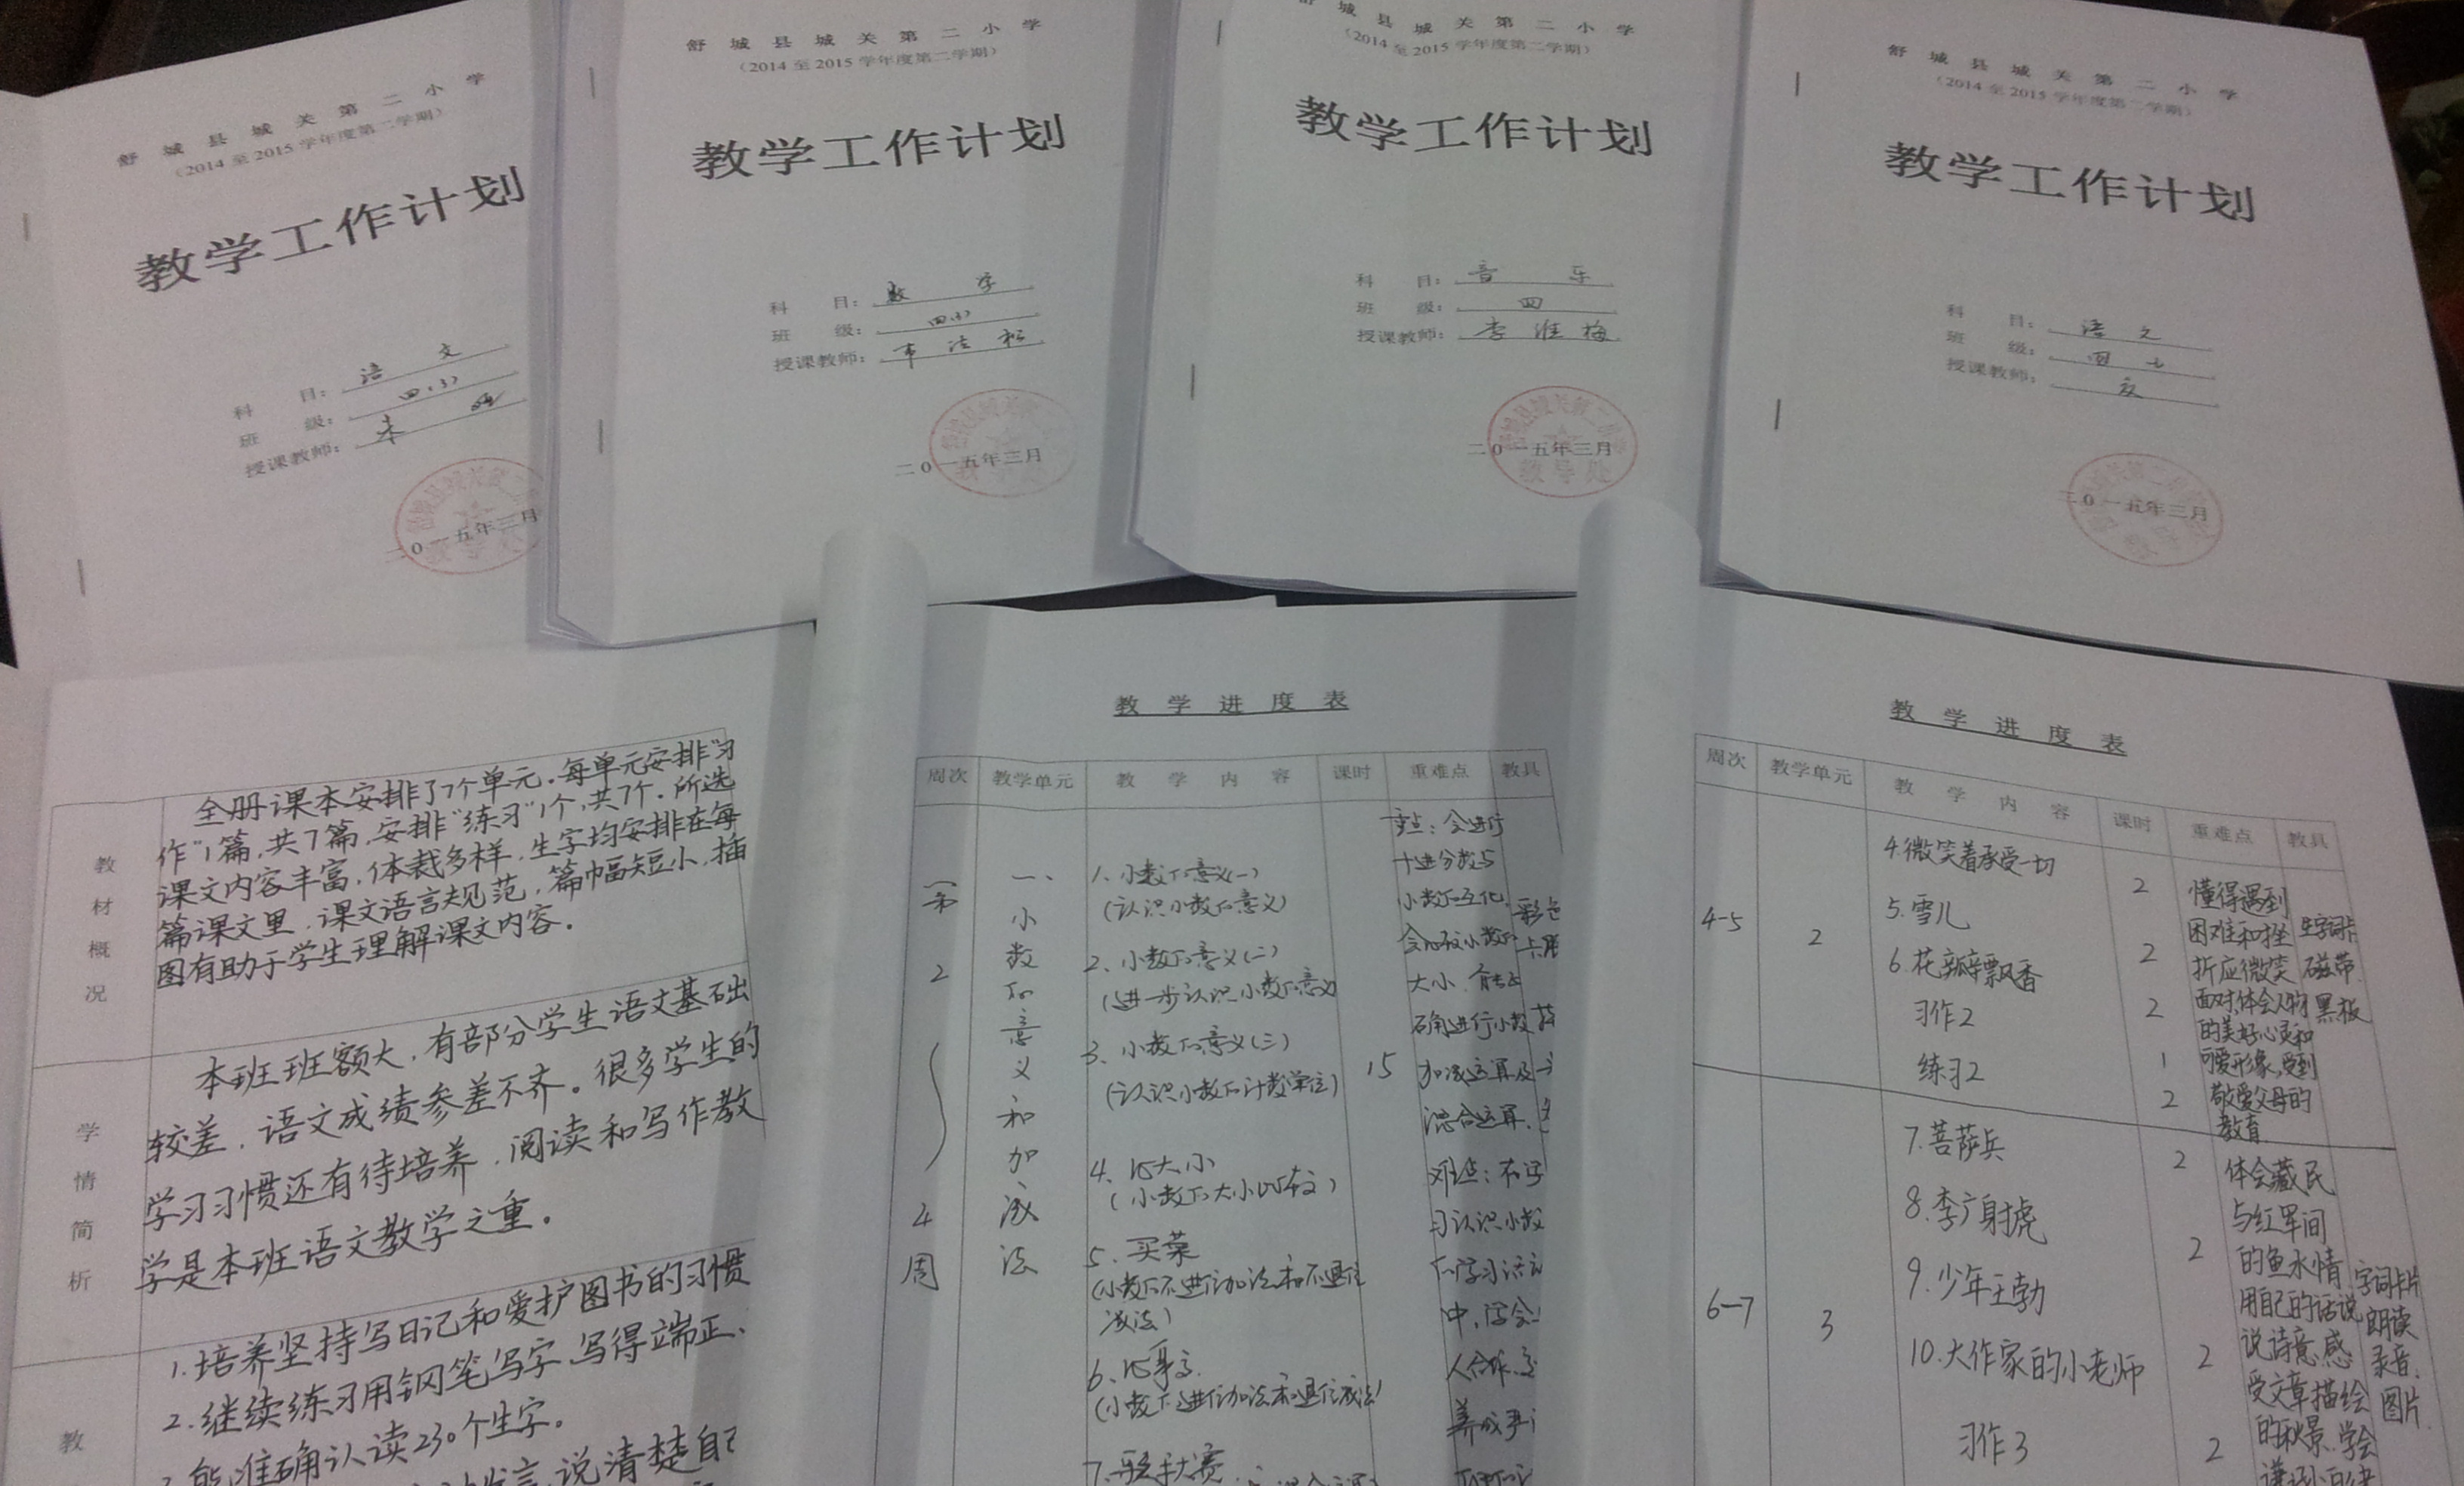 舒城县城关第二小学
（2014至2015学年度第二学期）
教学工作计划
科 目： 语 文
班 级： 四（3）
授课教师：
二0一五年三月
舒城县城关第二小学
（2014至2015学年度第二学期）
教学工作计划
科 目： 数 学
班 级： 四（3）
授课教师：
二0一五年三月
舒城县城关第二小学
（2014至2015学年度第二学期）
教学工作计划
科 目： 音 乐
班 级： 四
授课教师： 李 维 梅
二0一五年三月
教导处
舒城县城关第二小学
（2014至2015学年度第二学期）
教学工作计划
科 目： 语 文
班 级： 四 七
授课教师：
二0一五年三月
教材概况
全册课本安排了7个单元。每单元安排“习
作”1篇，共7篇，安排“练习”1个，共7个。所选
课文内容丰富，体裁多样，生字均安排在每
篇课文里，课文语言规范，篇幅短小，插
图有助于学生理解课文内容。
学情简析
本班班额大，有部分学生语文基础
较差，语文成绩参差不齐。很多学生的
学习习惯还有待培养，阅读和写作教
学是本班语文教学之重。
教
1.培养坚持写日记和爱护图书的习惯
2.继续练习用钢笔写字，写得端正、
能准确认读230个生字。
发言，说清楚自己
教学进度表
周次 教学单元 教学内容 课时 重难点 教具
第2～4周
一、小数的意义和加减法
1、小数的意义（一）
（认识小数的意义）
2、小数的意义（二）
（进一步认识小数的意义）
3、小数的意义（三）
（认识小数的计数单位）
4、比大小
（小数的大小比较）
5、买菜
（小数的不进位加法和不退位
减法）
6、比身高
（小数的进位加法和退位减法）
7、歌手大赛
15
重点：会进行
十进分数与
小数的互化，
会比较小数的
大小，
确进行小数
加减运算及
混合运算。
难点：在学
习认识小数
的学习活动
中，学会
人合作、
养成
彩色
卡
教学进度表
周次 教学单元 教学内容 课时 重难点 教具
4-5
2
4.微笑着承受一切
5.雪儿
6.花瓣飘香
习作2
练习2
2
2
2
1
2
懂得遇到
困难和挫
折应微笑
面对，体会人物
的美好心灵和
可爱形象，受到
敬爱父母的
教育。
生字词卡
磁带
黑板
6-7
3
7.菩萨兵
8.李广射虎
9.少年王勃
10.大作家的小老师
习作3
2
2
2
2
体会藏民
与红军间
的鱼水情
用自己的话说
说诗意，感
受文章描绘
的秋景，学会
字词卡片
朗读
录音，
图片